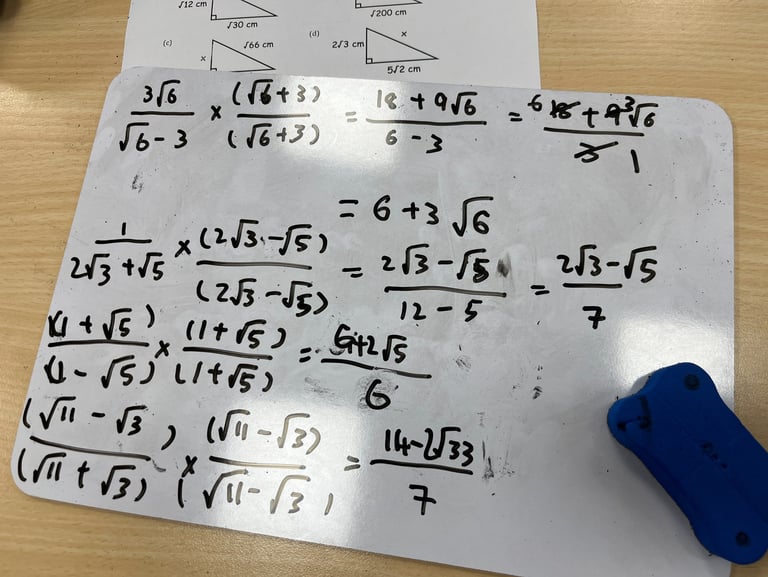 √12 cm
√30 cm
√200 cm
(c) √66 cm x
(d) 2√3 cm x 5√2 cm
3√6/(√6 - 3) × (√6+3)/(√6+3) = (18 + 9√6)/(6 - 3) = (6 18 + 9 3√6)/(3 1)
= 6 + 3√6
1/(2√3 + √5) × (2√3 - √5)/(2√3 - √5) = (2√3 - √5)/(12 - 5) = (2√3 - √5)/7
(1 + √5)/(1 - √5) × (1+√5)/(1+√5) = (6+2√5)/6
(√11 - √3)/(√11 + √3) × (√11 - √3)/(√11 - √3) = (14-2√33)/7